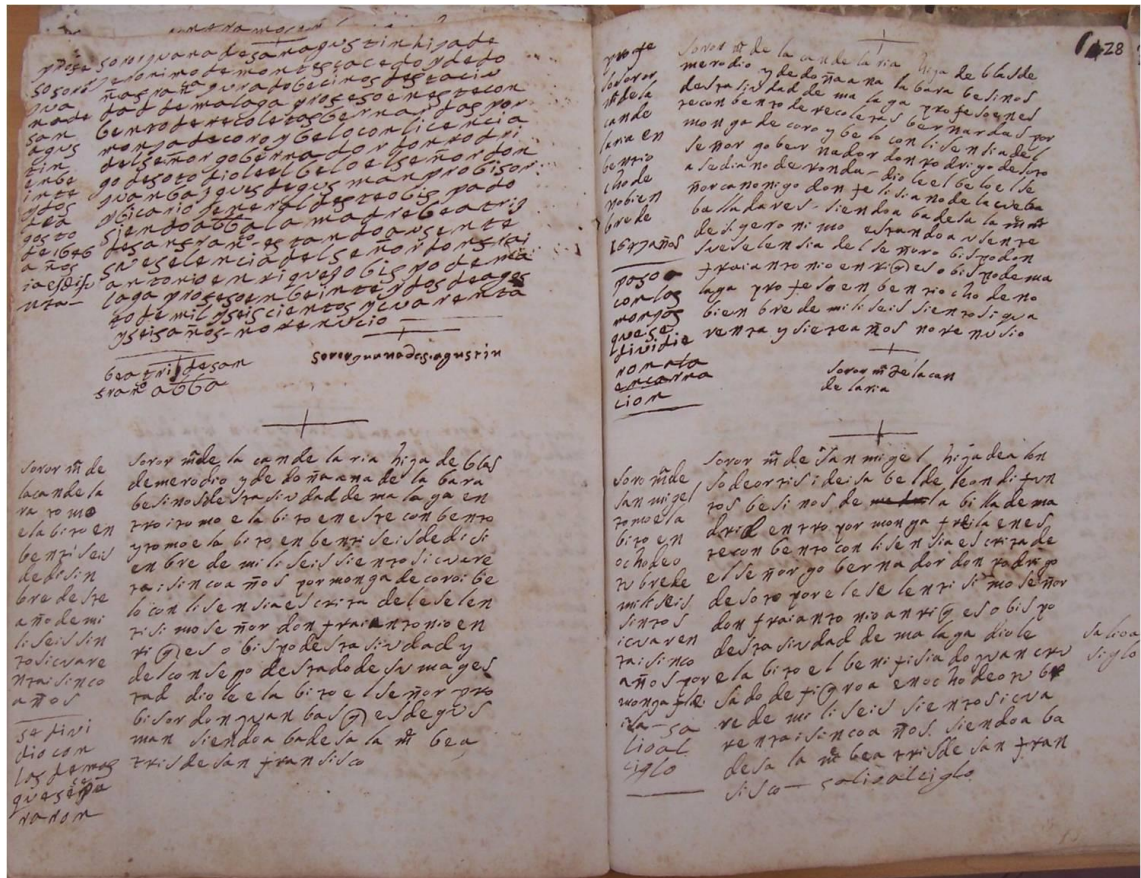 soror juana de san agustin hija de
geronimo de montes
dad de malaga profeso en este con
bento de recoletas bernardas por
monja de coro y belo con licencia
del señor gobernador don rodri
go de soto diole el belo el señor don
juan basques de gusman probisor
y bicario general deste obispado
siendo abba la madre beatriz
de san franco estando ausente
su eselencia del señor don frai
antonio enriques obispo de ma
laga profeso en beinte y dos de agos
to de mil y seiscientos y cuarenta
y seis años no renucio
beatris de san
franco abba
soror juana de s. agustin
soror ma de
la cande la
ria tomo
el abito en
benti seis
de disin
bre deste
año de mi
li seis sin
tos i cuare
nta i sinco
años
se divi
dio con
las demas
que se sepa
raron
soror ma de la candelaria hija de blas
de merodio y de doña ana de la bara
besinos desta siudad de malaga en
tro i tomo el abito en este conbento
y tomo el abito en benti seis de disi
enbre de mil i seis sientos i cuare
ta i sinco años por monga de coro i be
lo con lisensia escrita del eselen
tisimo señor don frai antonio en
riqes obispo desta siudad y
del consejo destado de su mages
tad diole el abito el señor pro
bisor don juan basqes de gus
man siendo abadesa la me bea
tris de san fransisco
128
profe
so soror
ma de la
cande
laria en
bentio
cho de
nobien
bre de
1647 años
paso a
con las
monjas
que se
dividie
ron a la
encarna
cion
soror ma de la candelaria hija de blas de
merodio y de doña ana la bara besinos
desta siudad de malaga profeso en es
te conbento de recoletas bernardas por
monga de coro y belo con lisensia del
señor gobernador don rodrigo de soto
asediano de ronda diole el belo el se
ñor canonigo don felisiano de la cueba
balladares siendo abadesa la me ma
de s geronimo estando ausente
su eselensia del señor obispo don
frai antonio enriqes obispo de ma
laga profeso en bentiocho de no
bienbre de mil i seis sientos i qua
renta y siete años no renusio
soror ma de la can
delaria
soro ma de
san migel
tomo el a
bito en
ocho de o
tubre de
mil i seis
sintos
i cuaren
ta i sinco
años por
monga frei
la salio al
ciglo
soror ma de san migel hija de alon
so de ortis i de isabel de leon difun
tos besinos de la billa de ma
drid entro por monga freila en es
te conbento con lisensia escrita de
el señor gobernador don rodrigo
de soto por el eselentisimo señor
don frai antonio anriqes obispo
desta siudad de malaga diole
el abito el benifisiado juan cru
sado de figroa en ocho de otub
re de mil i seis sientos i cua
renta i sinco años siendo aba
desa la me beatris de san fran
sisco salio al ciglo
salio a
siglo